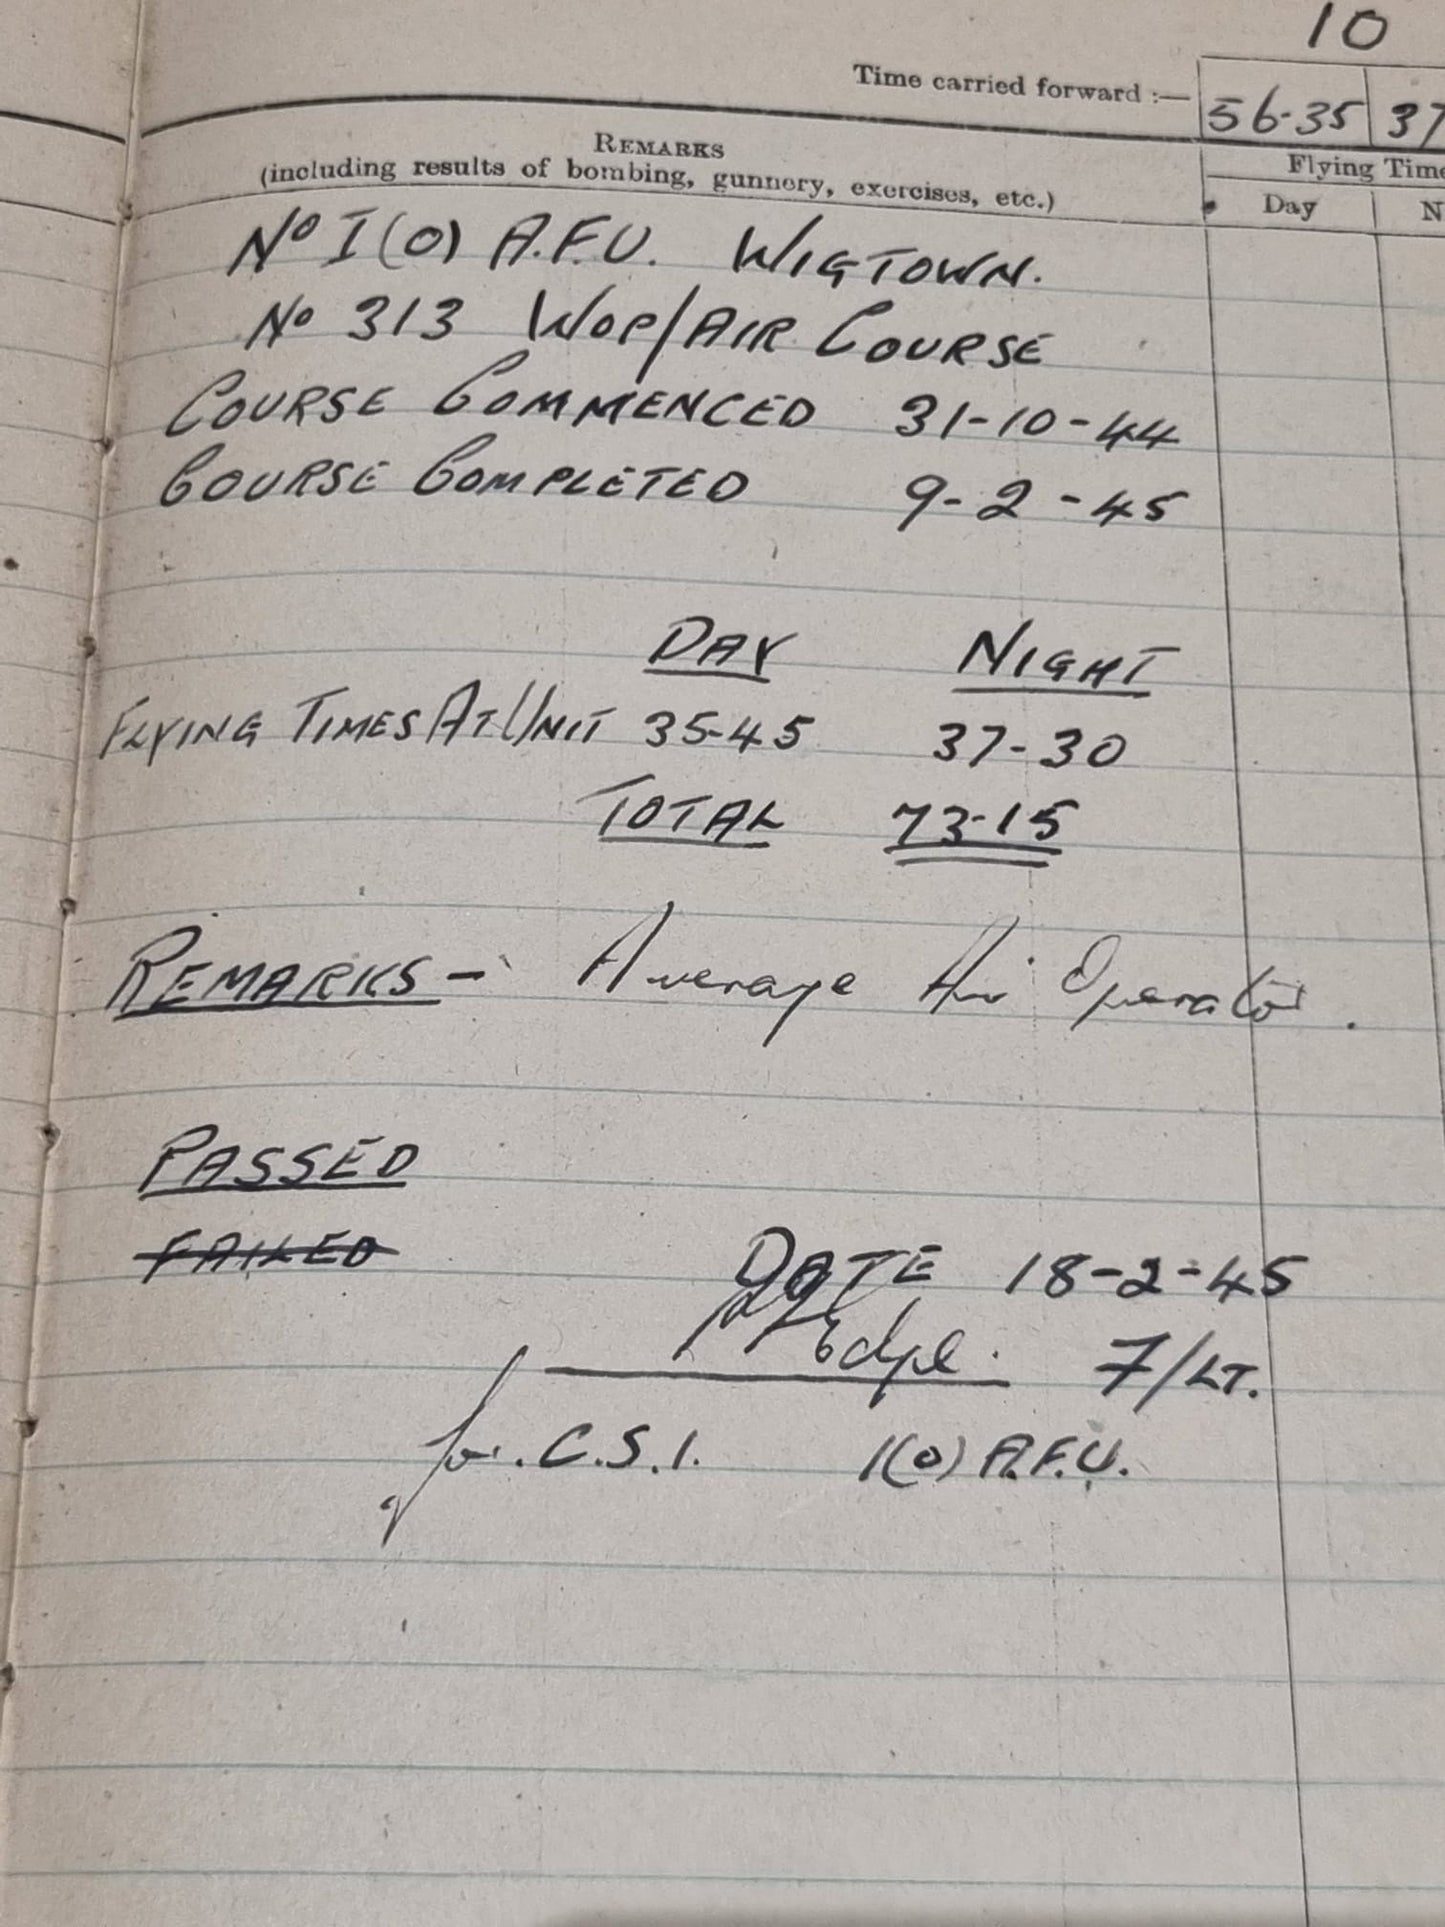 10
Time carried forward :— 56-35 37
REMARKS
(including results of bombing, gunnery, exercises, etc.)
Flying Time
Day N
No I(O) A.F.U. WIGTOWN.
No 313 WOP/AIR COURSE
COURSE COMMENCED 31-10-44
COURSE COMPLETED 9-2-45
DAY NIGHT
FLYING TIMES AT UNIT 35-45 37-30
TOTAL 73-15
REMARKS - Average Air Operator.
PASSED
FAILED
DATE 18-2-45
F/LT.
for. C.S.I. 1(O) A.F.U.